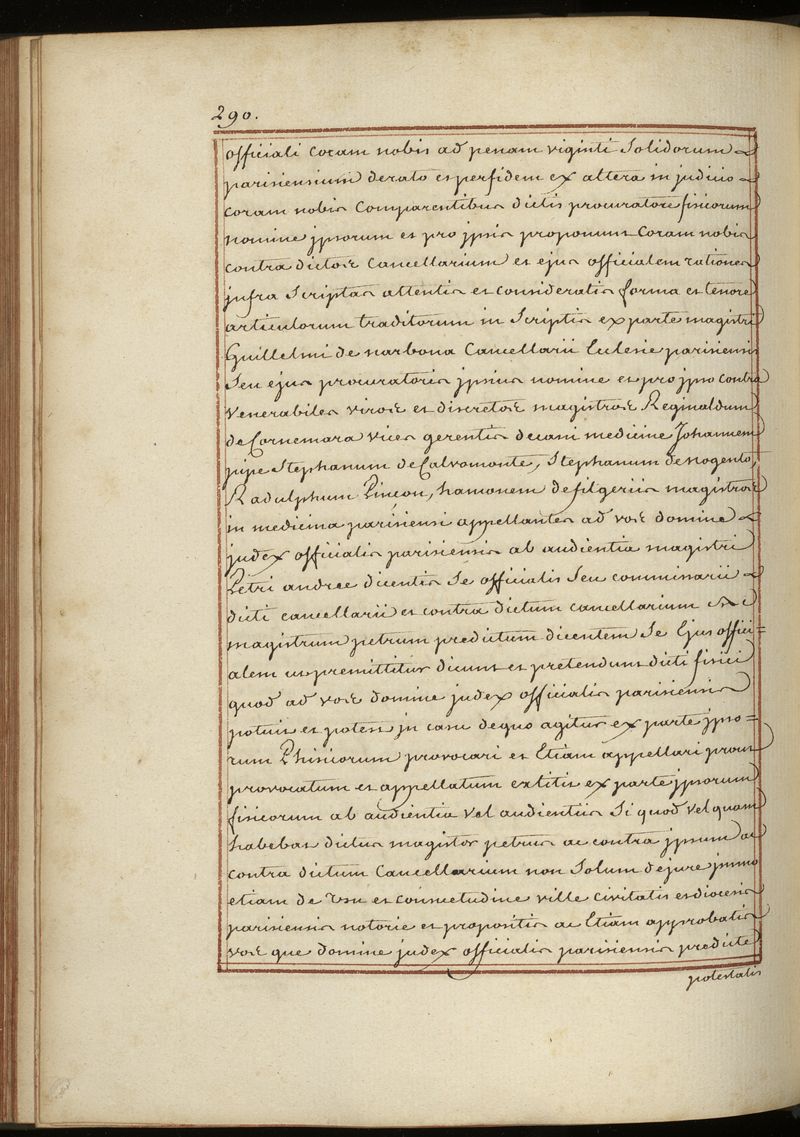 290.
officiali coram nobis ad penam viginti Solidorum
parisiensium derato et perfidem ex altera in judicio
coram nobis Comparentibus dictis procuratore fisicorum
nomine jpsorum et pro jpsis proponunt Coram nobis
contra dictos Cancellarium et ejus officialem rationes
jnfra Scriptas attentis et consideratis forma et tenore
articulorum traditorum in Scriptis ex parte magistri
Guillelmi de narbona Cancellarii Eclesie parisiensis
Seu ejus procuratoris jpsius nomine et pro jpso contra
venerabiles viros et discretos magistros Reginaldum
de Cornemara vices gerentis decani medicine Johannem
pipe Stephanum de Calvomonte, Stephanum de nogento,
Radulphum Pinçon, hamonem de filgeriis magistros
in medicina parisiensi appellantes ad vos domine
judex officialis parisiensis ab audientia magistri
Petri andree dicentis Se officialis Seu commissarii
dicti cancellarii et contra dictum cancellarium
magistrum petrum predictum dicentem Se Ejus offici=
alem ut premittitur dicunt et pretendunt dicti fisici
quod ad vos domine judex officialis parisiensis
potuit et potest jn casu de quo agitur ex parte jpso=
rum Phisicorum provocari et Etiam appellari prout
provocatum et appellatum extitit ex parte jpsorum
fisicorum ab audientia vel audientiis Si quod vel quam
habebat dictus magister petrus ac contra jpsum ac
contra dictum Cancellarium non Solum de jure jmmo
etiam de Usu et consuetudine ville civitatis et diocesis
parisiensis notorie et propositis ac Etiam approbatis
vos que domine judex officialis parisiensis predicte
potestatis